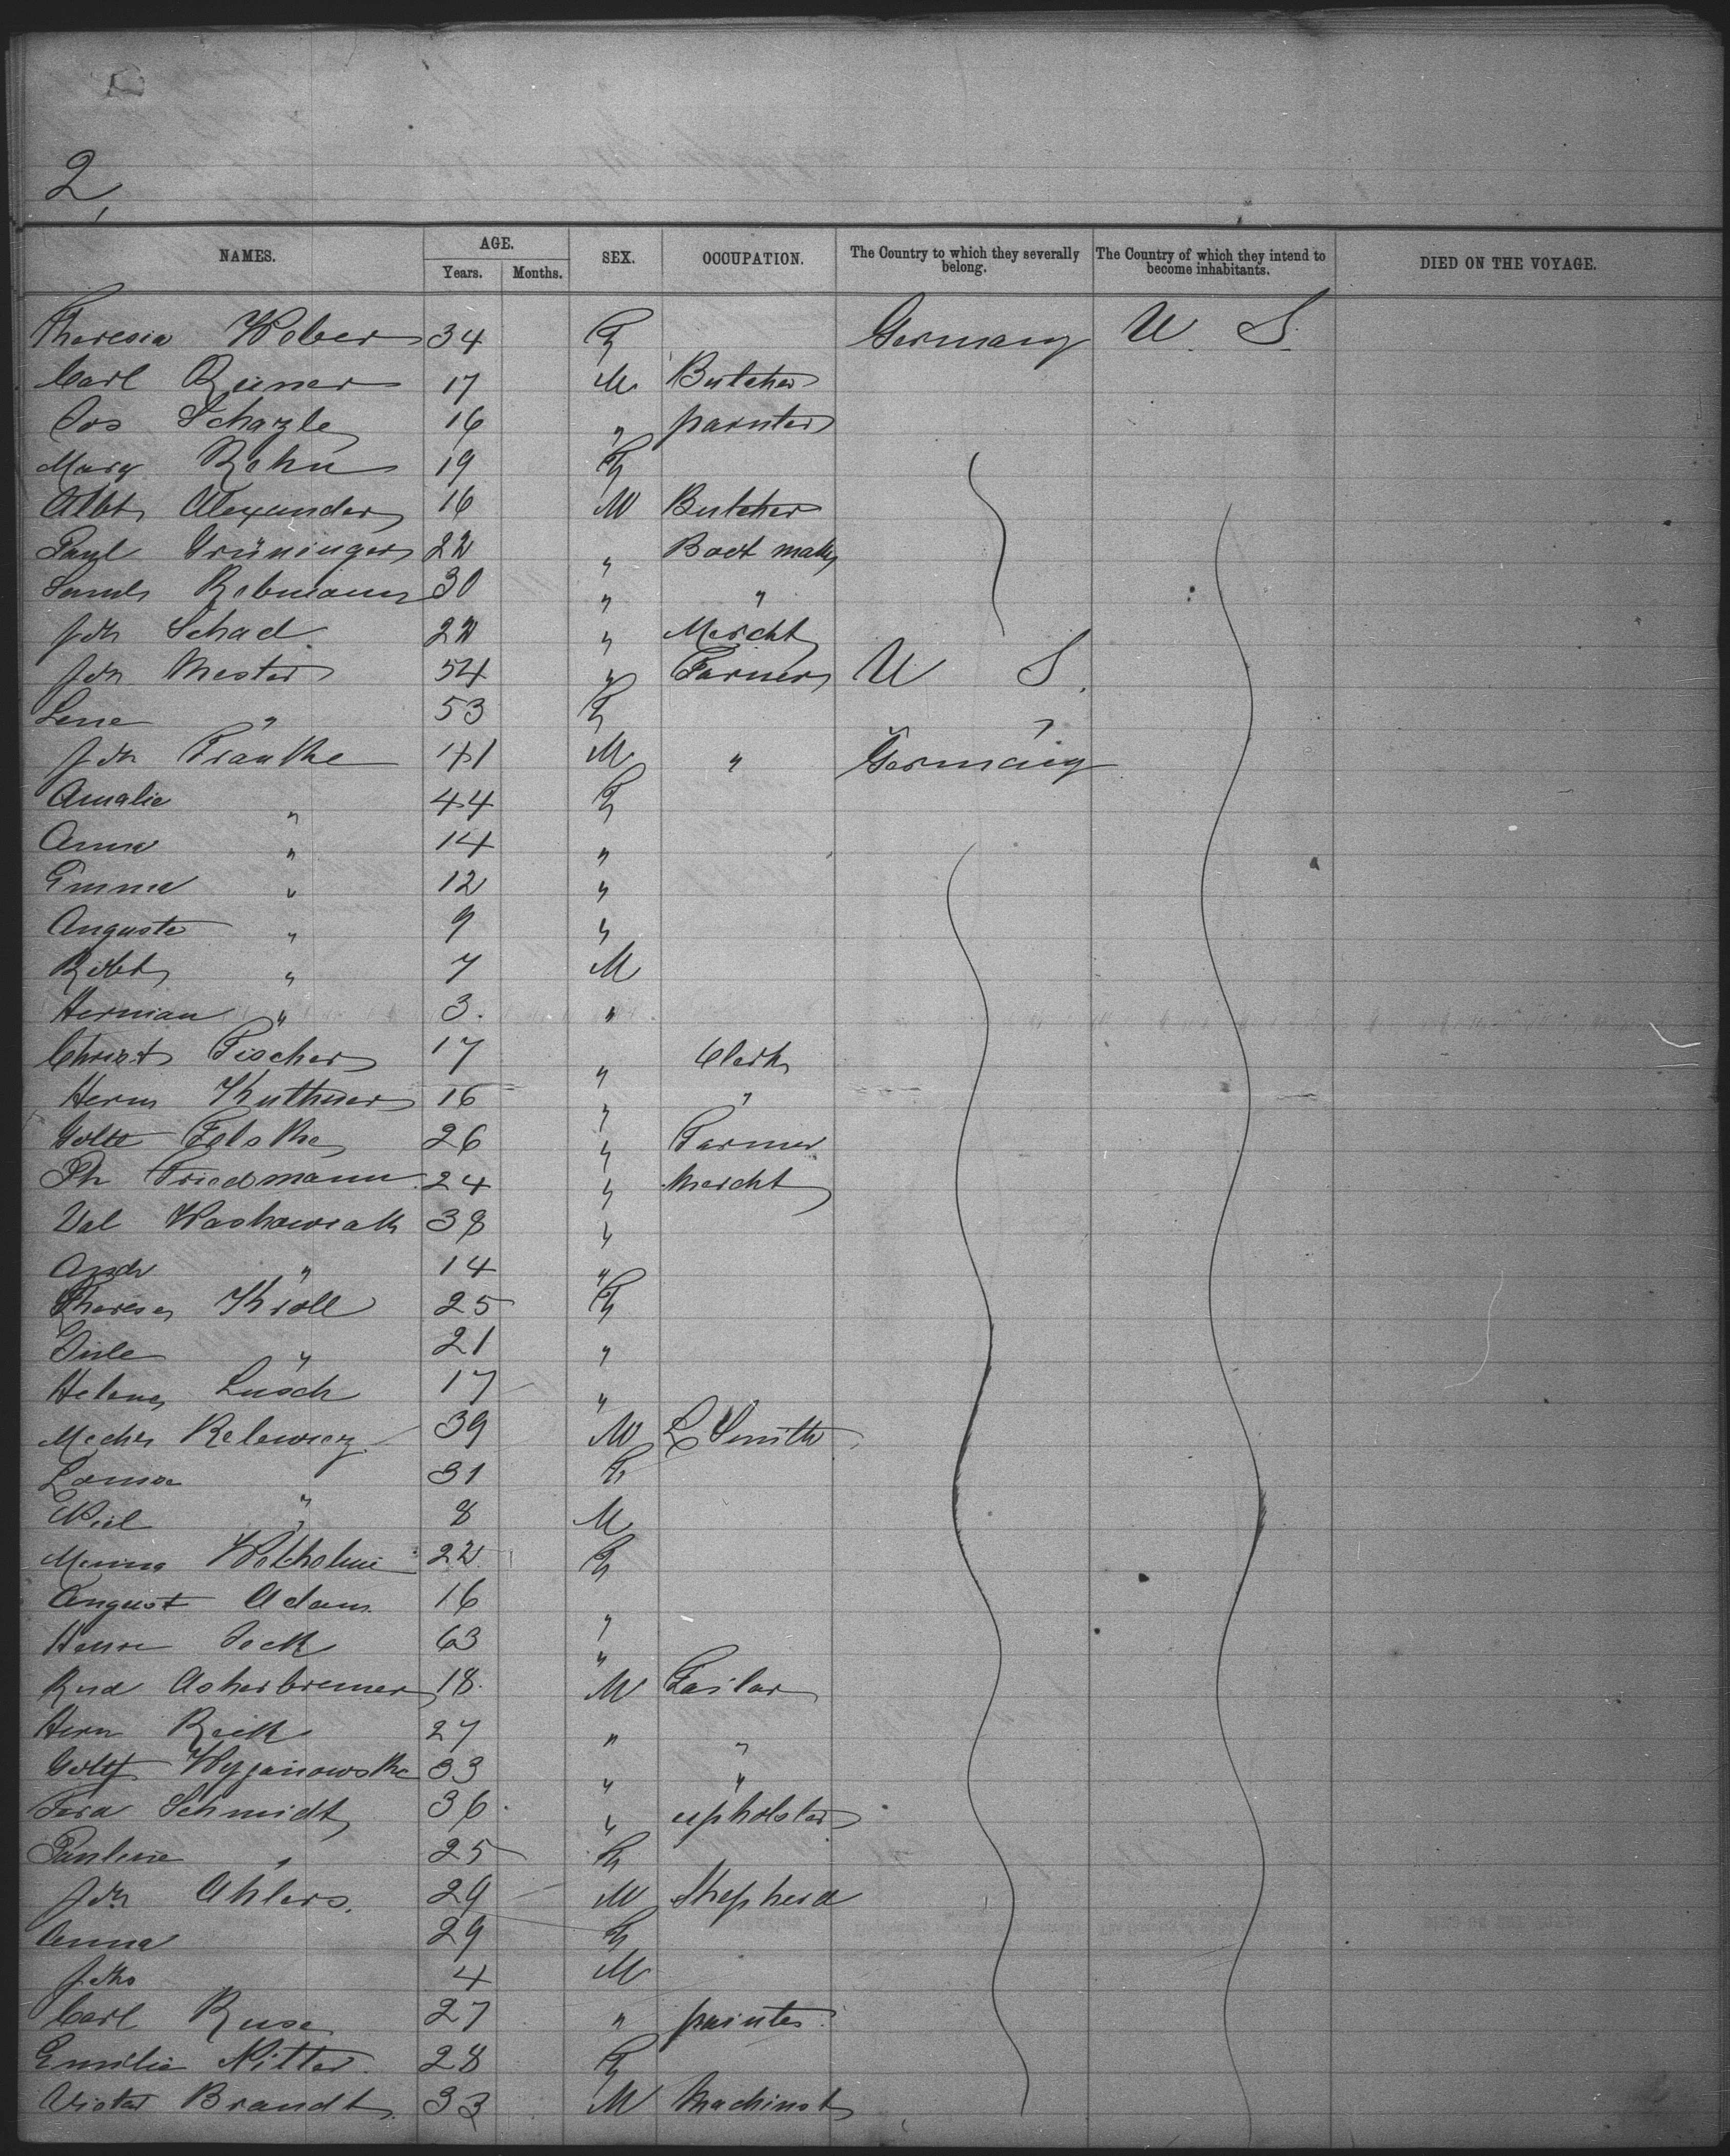 2,
NAMES. AGE. SEX. OCCUPATION. The Country to which they severally belong. The Country of which they intend to become inhabitants. DIED ON THE VOYAGE.
Years. Months.
Theresia Weber 34 F Germany U. S.
Carl 17 M Butcher
Jos Schazle 16 " painter
Mary Rehn 19 F
Albt Alexander 16 M Butcher
Paul Grüninger 22 " Boot mak
Saml Rebmann 30 " "
Joh Schad 22 " Mercht
Joh Mester 54 " Farmer U S.
Lene " 53 F "
Joh Franke 41 M " Germany
Amalie " 44 F
Anna " 14 "
Emma " 12 "
Auguste " 9 "
Robt " 7 M
Herman " 3. "
Christ Fischer 17 " Clerk
Herm Kuthner 16 " "
Felske 26 " Farmer
Ph Friedmann 24 " Mercht
Val 38 "
Andr " 14 "
Therese Kroll 25 F
" 21 "
Helene Lusch 17 "
Relewicz 39 M L Smith
" 31 F
" 8 M
Minna 22 F
August Adam 16 "
63 "
Rud 18. M Tailor
Herm 27 " "
33 " "
Schmidt 36. " upholster
Pauline " 25 F
Joh Ahlers. 29 M Shepherd
Anna 29 F
Johs 4 M
Carl Ruse 27 " painter
Emilie Ritter. 28 F
Victor Brandt 33 M Machinst